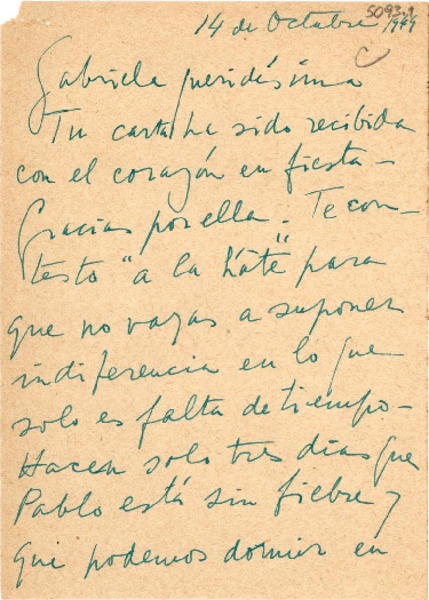 5093-1
14 de Octubre 1949
Gabriela queridísima
Tu carta ha sido recibida
con el corazón en fiesta -
Gracias por ella. Te con-
testo "a la hâte" para
que no vayas a suponer
indiferencia en lo que
solo es falta de tiempo -
Hacen solo tres días que
Pablo está sin fiebre y
que podemos dormir en